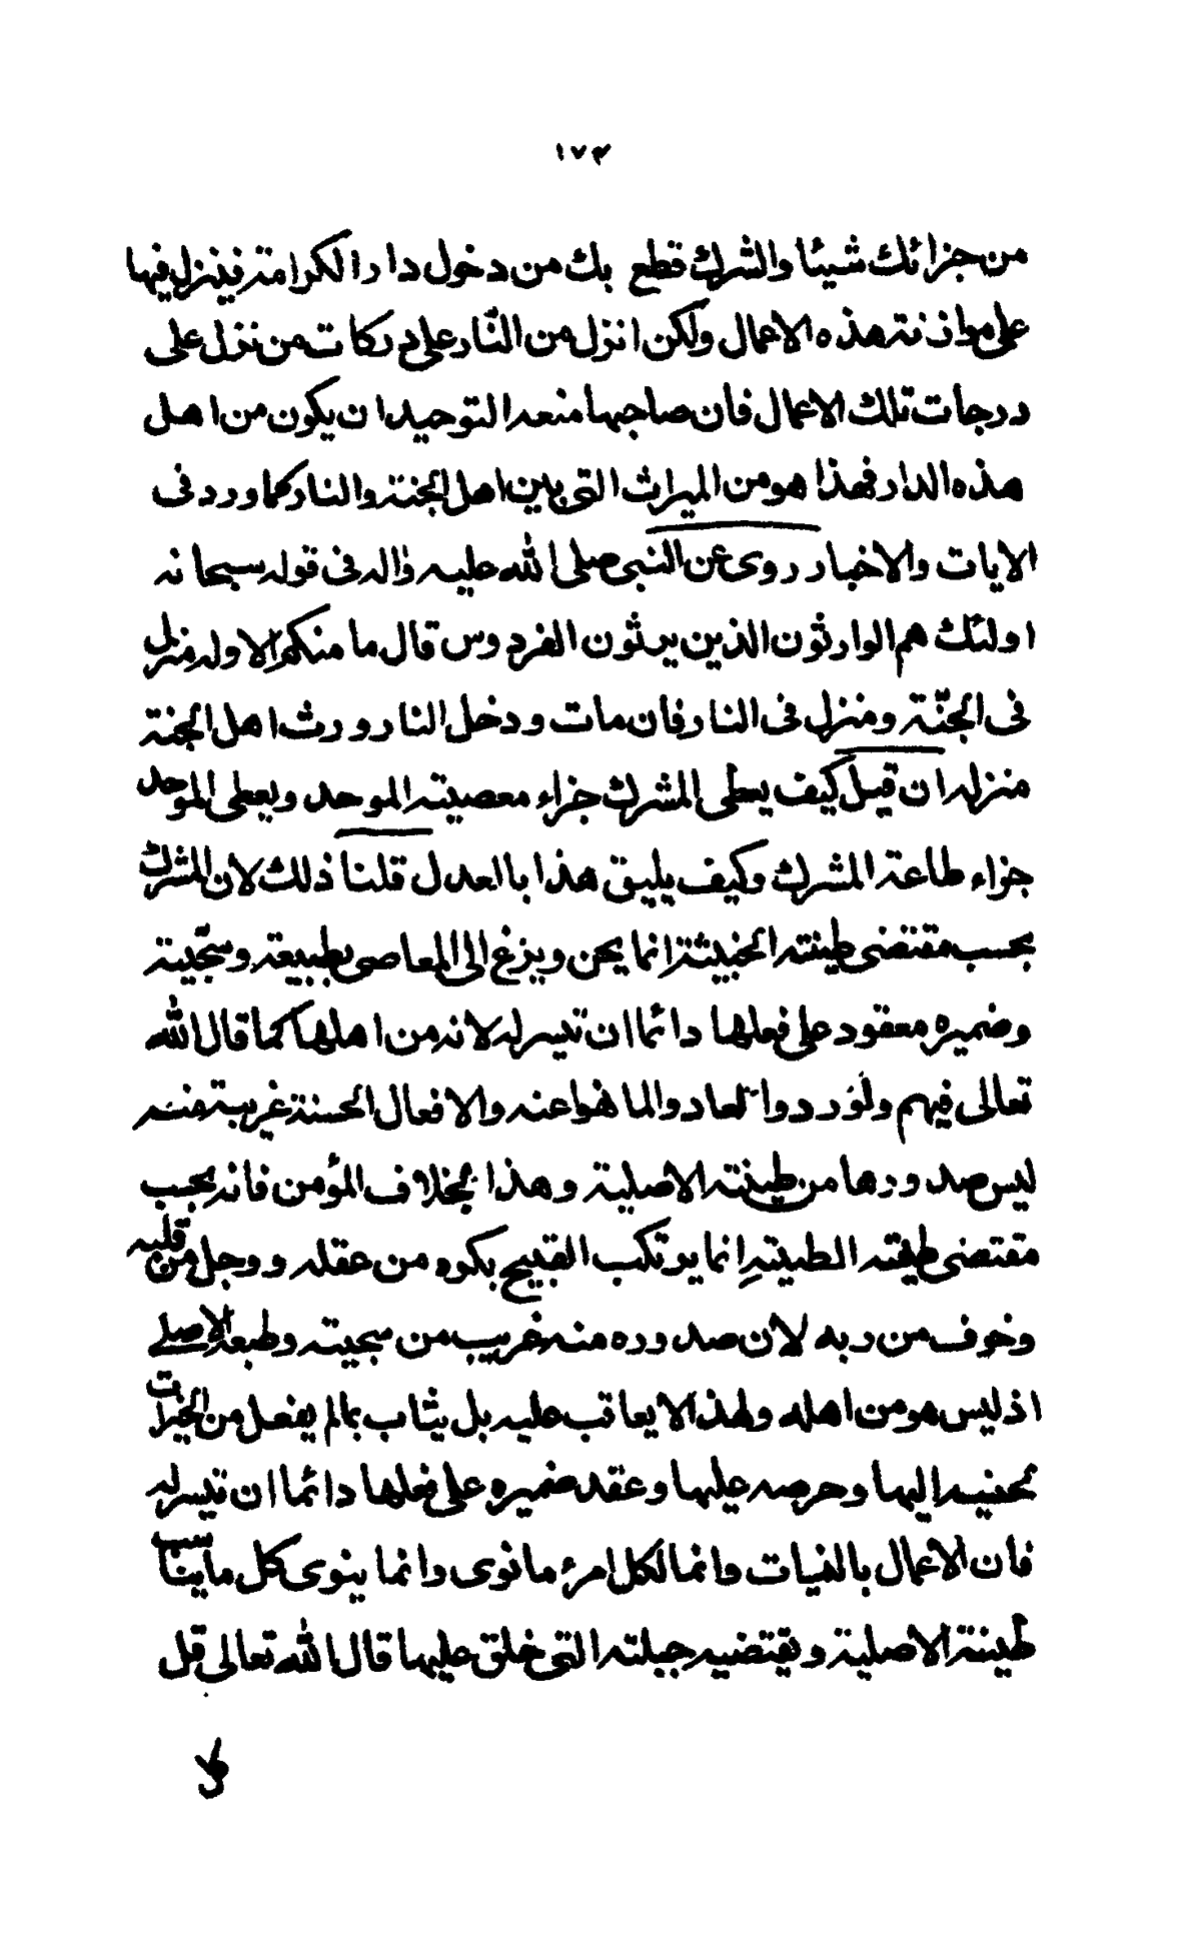 ١٧٣
من جزائك شيئا والشرك قطع بك من دخول دار الكرامة فينزل فيها
على موازنة هذه الاعمال ولكن انزل من النّار على دركات من نزل على
درجات تلك الاعمال فان صاحبها منعه التوحيد ان يكون من اهل
هذه الدار فهذا هو من الميراث التى بين اهل الجنة والنار كما ورد فى
الايات والاخبار روى عن النبى صلى الله عليه واله فى قوله سبحانه
اولئك هم الوارثون الذين يرثون الفردوس قال ما منكم الا وله منزل
فى الجنّة ومنزل فى النار فان مات ودخل النار ورث اهل الجنة
منزله ان قيل كيف يعطى المشرك جزاء معصيته الموحد ويعطى الموحد
جزاء طاعة المشرك وكيف يليق هذا بالعدل قلنا ذلك لان المشرك
بحسب مقتضى طينته الخبيثة انما يحن ويزغ الى المعاصى بطبيعة وسجّينة
وضميره معقود على فعلها دائما ان تيسر له لانه من اهلها كما قال الله
تعالى فيهم ولو ردوا لعادوا لما نهوا عنه والافعال الحسنة غريبة منه
ليس صدورها من طينته الاصلية وهذا بخلاف المؤمن فانه بحسب
مقتضى طينته الطينة انما يرتكب القبيح بكره من عقله ووجل من قلبه
وخوف من ربه لان صدوره منه غريب من سجيته وطبعه الاصلے
اذ ليس هو من اهله ولهذا لا يعاقب عليه بل يثاب بما لم يفعل من الخيرات
لحنينه اليها وحرصه عليها وعقد ضميره على فعلها دائما ان تيسر له
فان الاعمال بالنيات وانما لكل امرئ ما نوى وانما ينوى كل ما يناسب
طينته الاصلية ويقتضيه جبلته التى خلق عليها قال الله تعالى قل
كل